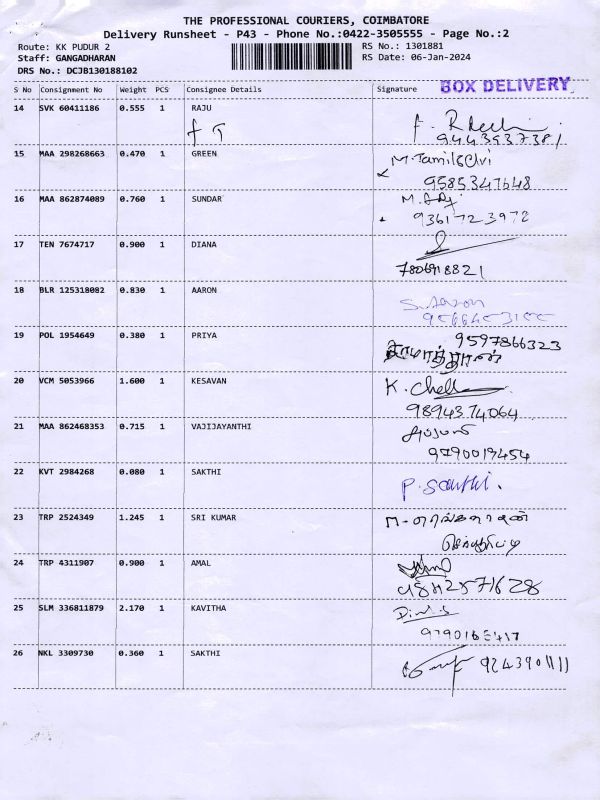 THE PROFESSIONAL COURIERS, COIMBATORE
Delivery Runsheet - P43 - Phone No.:0422-3505555 - Page No.:2
Route: KK PUDUR 2
RS No.: 1301881
Staff: GANGADHARAN
RS Date: 06-Jan-2024
DRS No.: DCJB130188102
BOX DELIVERY
S No Consignment No Weight PCS Consignee Details Signature
14 SVK 60411186 0.555 1 RAJU
9443937381
15 MAA 298268663 0.470 1 GREEN M.Tamilselvi
9585347648
16 MAA 862874089 0.760 1 SUNDAR
9361723972
17 TEN 7674717 0.900 1 DIANA
18 BLR 125318082 0.830 1 AARON S.Aaron
19 POL 1954649 0.380 1 PRIYA 9597866323
20 VCM 5053966 1.600 1 KESAVAN K.
9894374064
21 MAA 862468353 0.715 1 VAJIJAYANTHI
9790019454
22 KVT 2984268 0.080 1 SAKTHI P.Sakthi.
23 TRP 2524349 1.245 1 SRI KUMAR
24 TRP 4311907 0.900 1 AMAL
9842571628
25 SLM 336811879 2.170 1 KAVITHA
26 NKL 3309730 0.360 1 SAKTHI